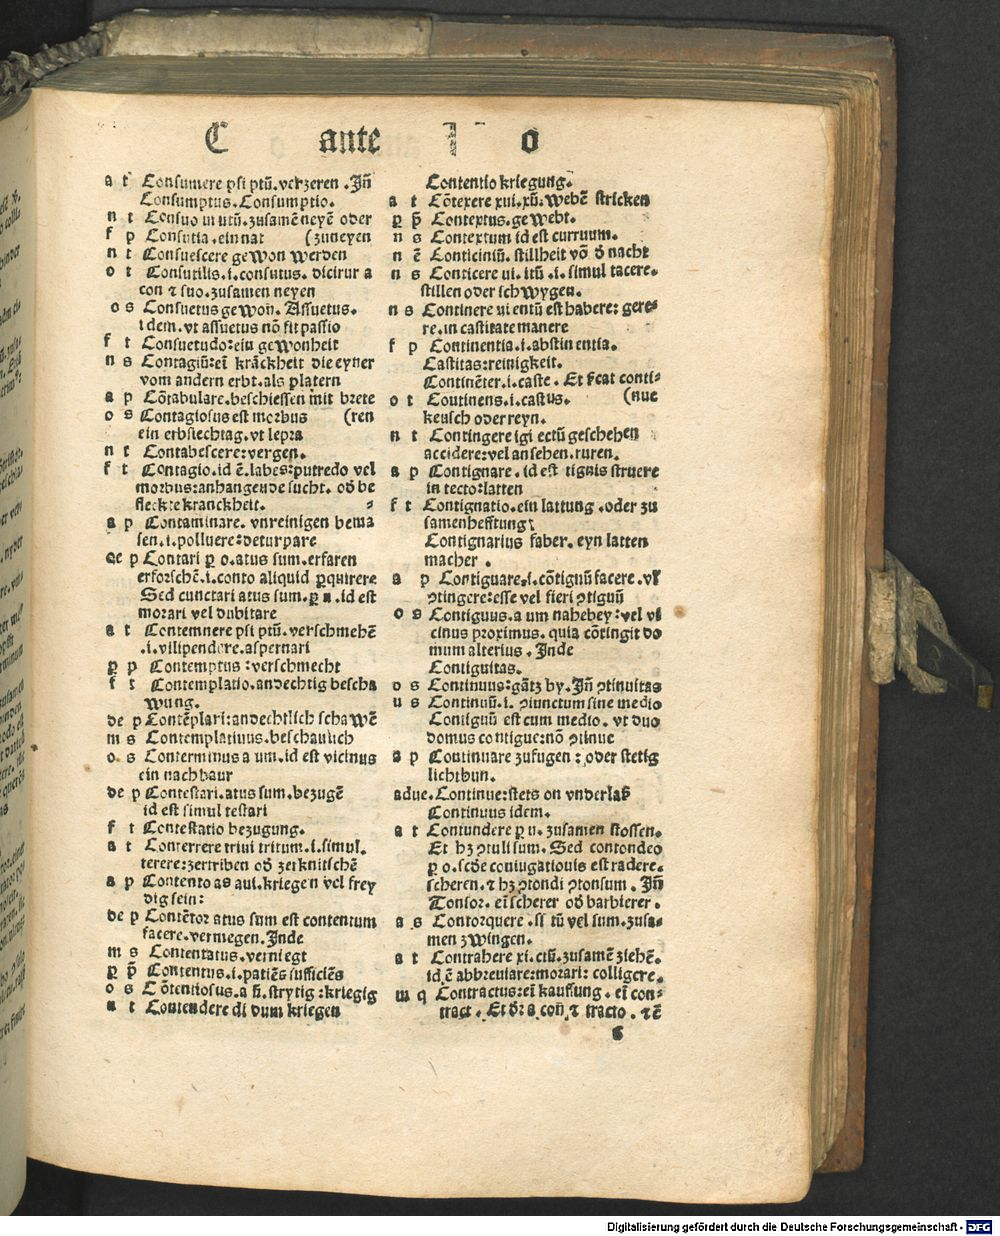 C ante o
a t Consumere psi ptū. verzeren . Jn̄
Consumptus. Consumptio.
n t Consuo ui utū. zusamē neyē oder
f p Consutia. ein nat (zuneyen
n t Consuescere gewon werden
o t Consutilis. i. consutus. dicitur a
con ⁊ suo. zusamen neyen
o s Consuetus gewon. Assuetus.
idem. vt assuetus nō fit passio
f t Consuetudo: ein gewonheit
n s Contagiū: eī krāckheit die eyner
vom andern erbt. als platern
a p Cōtabulare. beschiessen mit brete
o s Contagiosus est morbus (ren
ein erbsiechtag. vt lepra
n t Contabescere: vergen.
f t Contagio. id ē. labes: putredo vel
morbus: anhangende sucht. od be
fleckte kranckheit.
a p Contaminare. vnreinigen bema
sen. i. polluere: deturpare
de p Contari ꝑ o. atus sum. erfaren
erforschē. i. conto aliquid ꝑquirere
Sed cunctari atus sum. ꝑ u . id est
morari vel dubitare
a t Contemnere psi ptū. verschmehē
. i. vilipendere. aspernari
ꝑ p Contemptus : verschmecht
f t Contemplatio. andechtig bescha
wung.
de p Contēplari: andechtlich schawē
m s Contemplatiuus. beschaulich
o s Conterminus a um. id est vicinus
ein nachbaur
de p Contestari. atus sum. bezugē
id est simul testari
f t Contestatio bezugung.
a t Conterrere triui tritum. i. simul.
terere: zertriben od zerknitschē
a p Contento as aui. kriegen vel frey
dig sein:
de p Contētor atus sum est contentum
facere. verniegen. Inde
m s Contentatus. verniegt
ꝑ p̄ Contentus. i. patiēs sufficiēs
o s Cōtentiosus. a ū. strytig : kriegig
a t Contendere di dum kriegen
Contentio kriegung.
a t Cōtexere xui. xtū: webē stricken
ꝑ p̄ Contextus. gewebt.
n s Contextum id est curruum.
n ē Conticiniū. stillheit vō d nacht
n s Conticere ui. itū . i. simul tacere.
stillen oder schwygen.
n s Continere ui entū est habere: gere
re. in castitate manere
f p Continentia. i. abstinentia.
Castitas: reinigkeit.
Continēter. i. caste . Et scat conti-
o t Coutinens. i. castus. (nue
keusch oder reyn.
n t Contingere igi ectū geschehen
accidere: vel ansehen. ruren.
a p Contignare. id est tignis struere
in tecto: latten
f t Contignatio. ein lattung . oder zu
samenhefftung
Contignarius faber. eyn latten
macher .
a p Contiguare. i. cōtignū facere. vl
ↄtingere: esse vel fieri ↄtiguū
o s Contiguus. a um nahebey : vel vi
cinus proximus. quia cōtingit do
mum alterius . Inde
Contiguitas.
o s Continuus: gātz by. Jn̄ ↄtinuitas
u s Continuū. i. ↄiunctum sine medio
Contiguū est cum medio. vt duo
domus contigue: nō ↄtinue
a p Coutinuare zufugen : oder stetig
lichthun.
adue. Continue: stets on vnderlaß
Continuus idem.
a t Contundere ꝑ u. zusamen stossen.
Et hꝫ ↄtuli sum. Sed contondeo
ꝑ o. scde coniugationis est radere.
scheren. ⁊ hꝫ ↄtondi ↄtonsum . Jn̄
Tonsor. eī scherer od barbierer .
a s Contorquere . si tū vel sum. zusa-
men zwingen.
a t Contrahere xi. ctū. zusamē ziehē.
id ē abbreuiare: morari: colligere.
m q Contractus: eī kauffung . eī con-
tract . Et dr̄ a con̄ ⁊ tracto . ⁊ ē
Digitalisierung gefördert durch die Deutsche Forschungsgemeinschaft - DFG